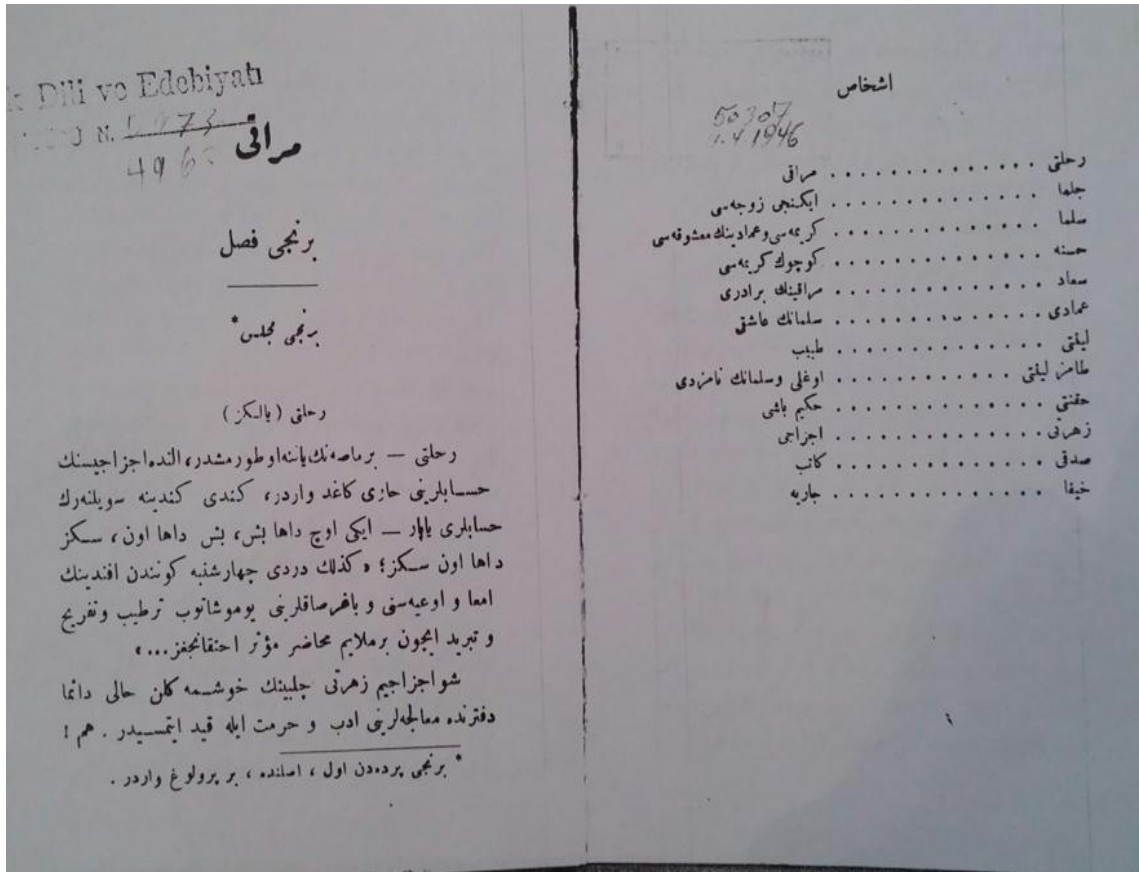 اشخاص
50307
1.4.1946
رحلتی . . . . . . . . . . . . . . مراقی
جلما . . . . . . . . . . . . . . ایکنجی زوجه‌سی
سلما . . . . . . . . . . . . . . کریمه‌سی وعمادینك معشوقه‌سی
حسنه . . . . . . . . . . . . . . کوچوك کریمه‌سی
سعاد . . . . . . . . . . . . . . مراقینك برادری
عمادی . . . . . . . . . . . . . . سلمانك عاشقی
لینتی . . . . . . . . . . . . . . طبیب
طامز لینتی . . . . . . . . . . . . . اوغلی وسلمانك نامزدی
حقنتی . . . . . . . . . . . . . . حکیم باشی
زهرتی . . . . . . . . . . . . . . اجزاجی
صدقی . . . . . . . . . . . . . . کاتب
خیفا . . . . . . . . . . . . . . جاریه
Dili ve Edebiyatı
N.
مراقی
برنجی فصل
برنجی مجلس*
رحلتی ( یالکز )
رحلتی — برماصه‌نك یاننه اوطورمشدر، النده اجزاجیسنك
حسابلرینی حازی کاغد واردر، کندی کندینه سویلنه‌رك
حسابلری یاپار — ایکی اوچ داها بش، بش داها اون، سکز
داها اون سکز؛ « کذلك دردی چهارشنبه کونندن افندینك
امعا و اوعیه‌سنی و باغرصاقلرینی یوموشاتوب ترطیب وتفریح
و تبرید ایچون برملایم محاضر مؤثر احتقانجغز... »
شو اجزاجیم زهرتی جلبینك خوشمه کلن حالی دائما
دفترنده معالجه‌لرینی ادب و حرمت ایله قید ایتمسیدر . هم !
* برنجی پرده‌دن اول ، اصلنده ، بر پرولوغ واردر .